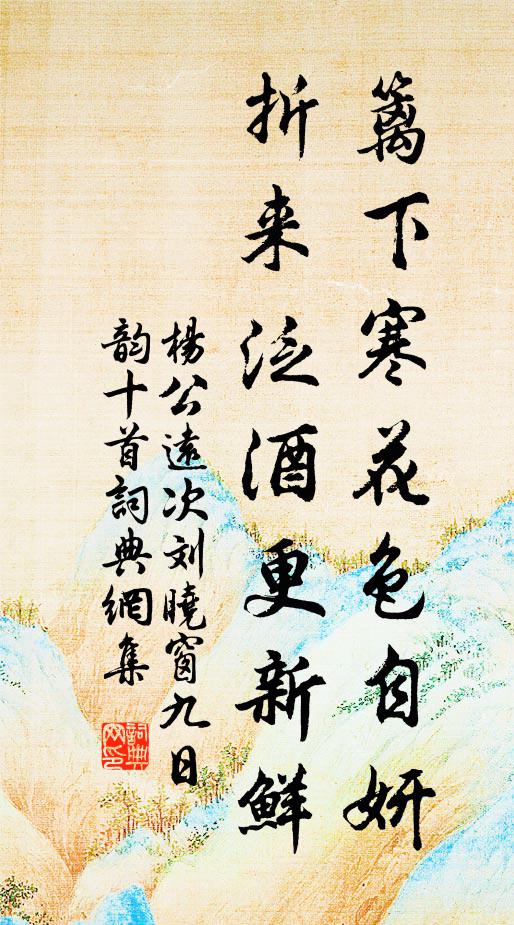 篱下寒花色自妍
折来泛酒更新鲜
楊公遠次刘曉窗九日
韵十首詞典網集
詞典网印